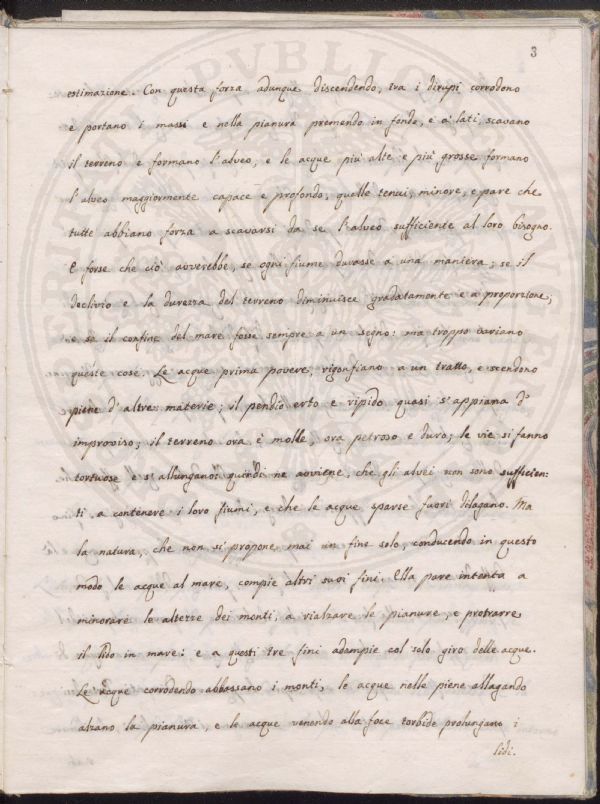 3
estimazione. Con questa forza adunque discendendo, tra i dirupi corrodono
e portano i massi e nella pianura premendo in fondo, e a' lati, scavano
il terreno e formano l'alveo, e le acque più alte e più grosse formano
l'alveo maggiormente capace e profondo, quelle tenui, minore, e pare che
tutte abbiano forza a scavarsi da se l'alveo sufficiente al loro bisogno.
E forse che ciò avverebbe, se ogni fiume durasse a una maniera; se il
declivio e la durezza del terreno diminuisce gradatamente e a proporzione;
e se il confine del mare fosse sempre a un segno: ma troppo variano
queste cose. Le acque prima povere, rigonfiano a un tratto, e scendono
piene d'altre materie; il pendio erto e ripido quasi s'appiana d'
improvviso; il terreno ora è molle, ora petroso e duro; le vie si fanno
tortuose e s'allungano: quindi ne avviene, che gli alvei non sono sufficien:
ti a contenere i loro fiumi, e che le acque sparse fuori dilagano. Ma
la natura, che non si propone mai un fine solo, conducendo in questo
modo le acque al mare, compie altri suoi fini. Ella pare intenta a
minorare le altezze dei monti, a rialzare le pianure, e protrarre
il lido in mare: e a questi tre fini adempie col solo giro delle acque.
Le acque corrodendo abbassano i monti, le acque nelle piene allagando
alzano la pianura, e le acque venendo alla foce torbide prolungano i
lidi.
PVBLICO